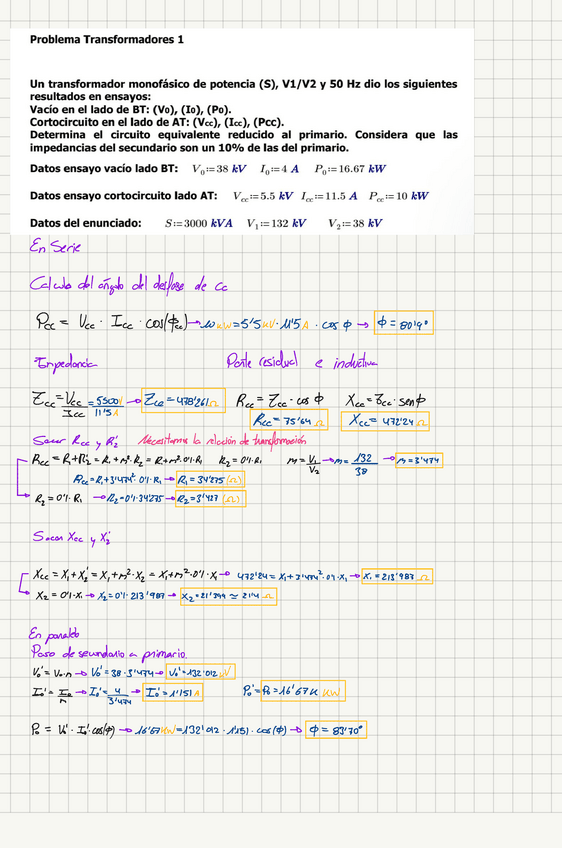 Problema Transformadores 1
Un transformador monofásico de potencia (S), V1/V2 y 50 Hz dio los siguientes
resultados en ensayos:
Vacío en el lado de BT: (V₀), (I₀), (P₀).
Cortocircuito en el lado de AT: (Vcc), (Icc), (Pcc).
Determina el circuito equivalente reducido al primario. Considera que las
impedancias del secundario son un 10% de las del primario.
Datos ensayo vacío lado BT: V₀:=38 kV I₀:=4 A P₀:=16.67 kW
Datos ensayo cortocircuito lado AT: Vcc:=5.5 kV Icc:=11.5 A Pcc:=10 kW
Datos del enunciado: S:=3000 kVA V₁:=132 kV V₂:=38 kV
En Serie
Calculo del ángulo del desfase de cc
Pcc = Vcc · Icc · cos(ϕcc) → 10 kW = 5'5 kV · 11'5 A · cos ϕ → ϕ = 80'9°
Impedancia Parte residual e inductiva
Zcc = Vcc/Icc = 5500/11'5 A → Zcc = 478'261 Ω Rcc = Zcc · cos ϕ Xcc = Zcc · sen ϕ
Rcc = 75'64 Ω Xcc = 472'24 Ω
Sacar Rcc y R₂' Necesitamos la relación de transformación
Rcc = R₁+R₂' = R₁+m²·R₂ = R₁+m²·0'1·R₁ R₂ = 0'1·R₁ m = V₁/V₂ → m = 132/38 → m = 3'474
Rcc = R₁+3'474²·0'1·R₁ → R₁ = 34'275 (Ω)
R₂ = 0'1·R₁ → R₂ = 0'1·34'275 → R₂ = 3'427 (Ω)
Sacar Xcc y X₂'
Xcc = X₁+X₂' = X₁+m²·X₂ = X₁+m²·0'1·X₁ → 472'24 = X₁+3'474²·0'1·X₁ → X₁ = 213'987 Ω
X₂ = 0'1·X₁ → X₂ = 0'1·213'987 → X₂ = 21'399 ≃ 21'4 Ω
En paralelo
Paso de secundario a primario.
V₀' = V₀·n → V₀' = 38·3'474 → V₀' = 132'012 kV
I₀' = I₀/n → I₀' = 4/3'474 → I₀' = 1'151 A P₀' = P₀ = 16'67 kW
P₀ = V₀' · I₀' · cos(ϕ) → 16'67 kW = 132'012 · 1'151 · cos(ϕ) → ϕ = 83'70°